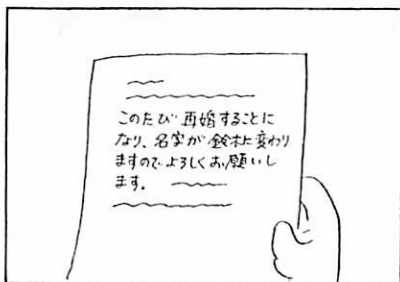 このたび再婚することに
なり、名字が鈴木に変わり
ますのでよろしくお願いし
ます。